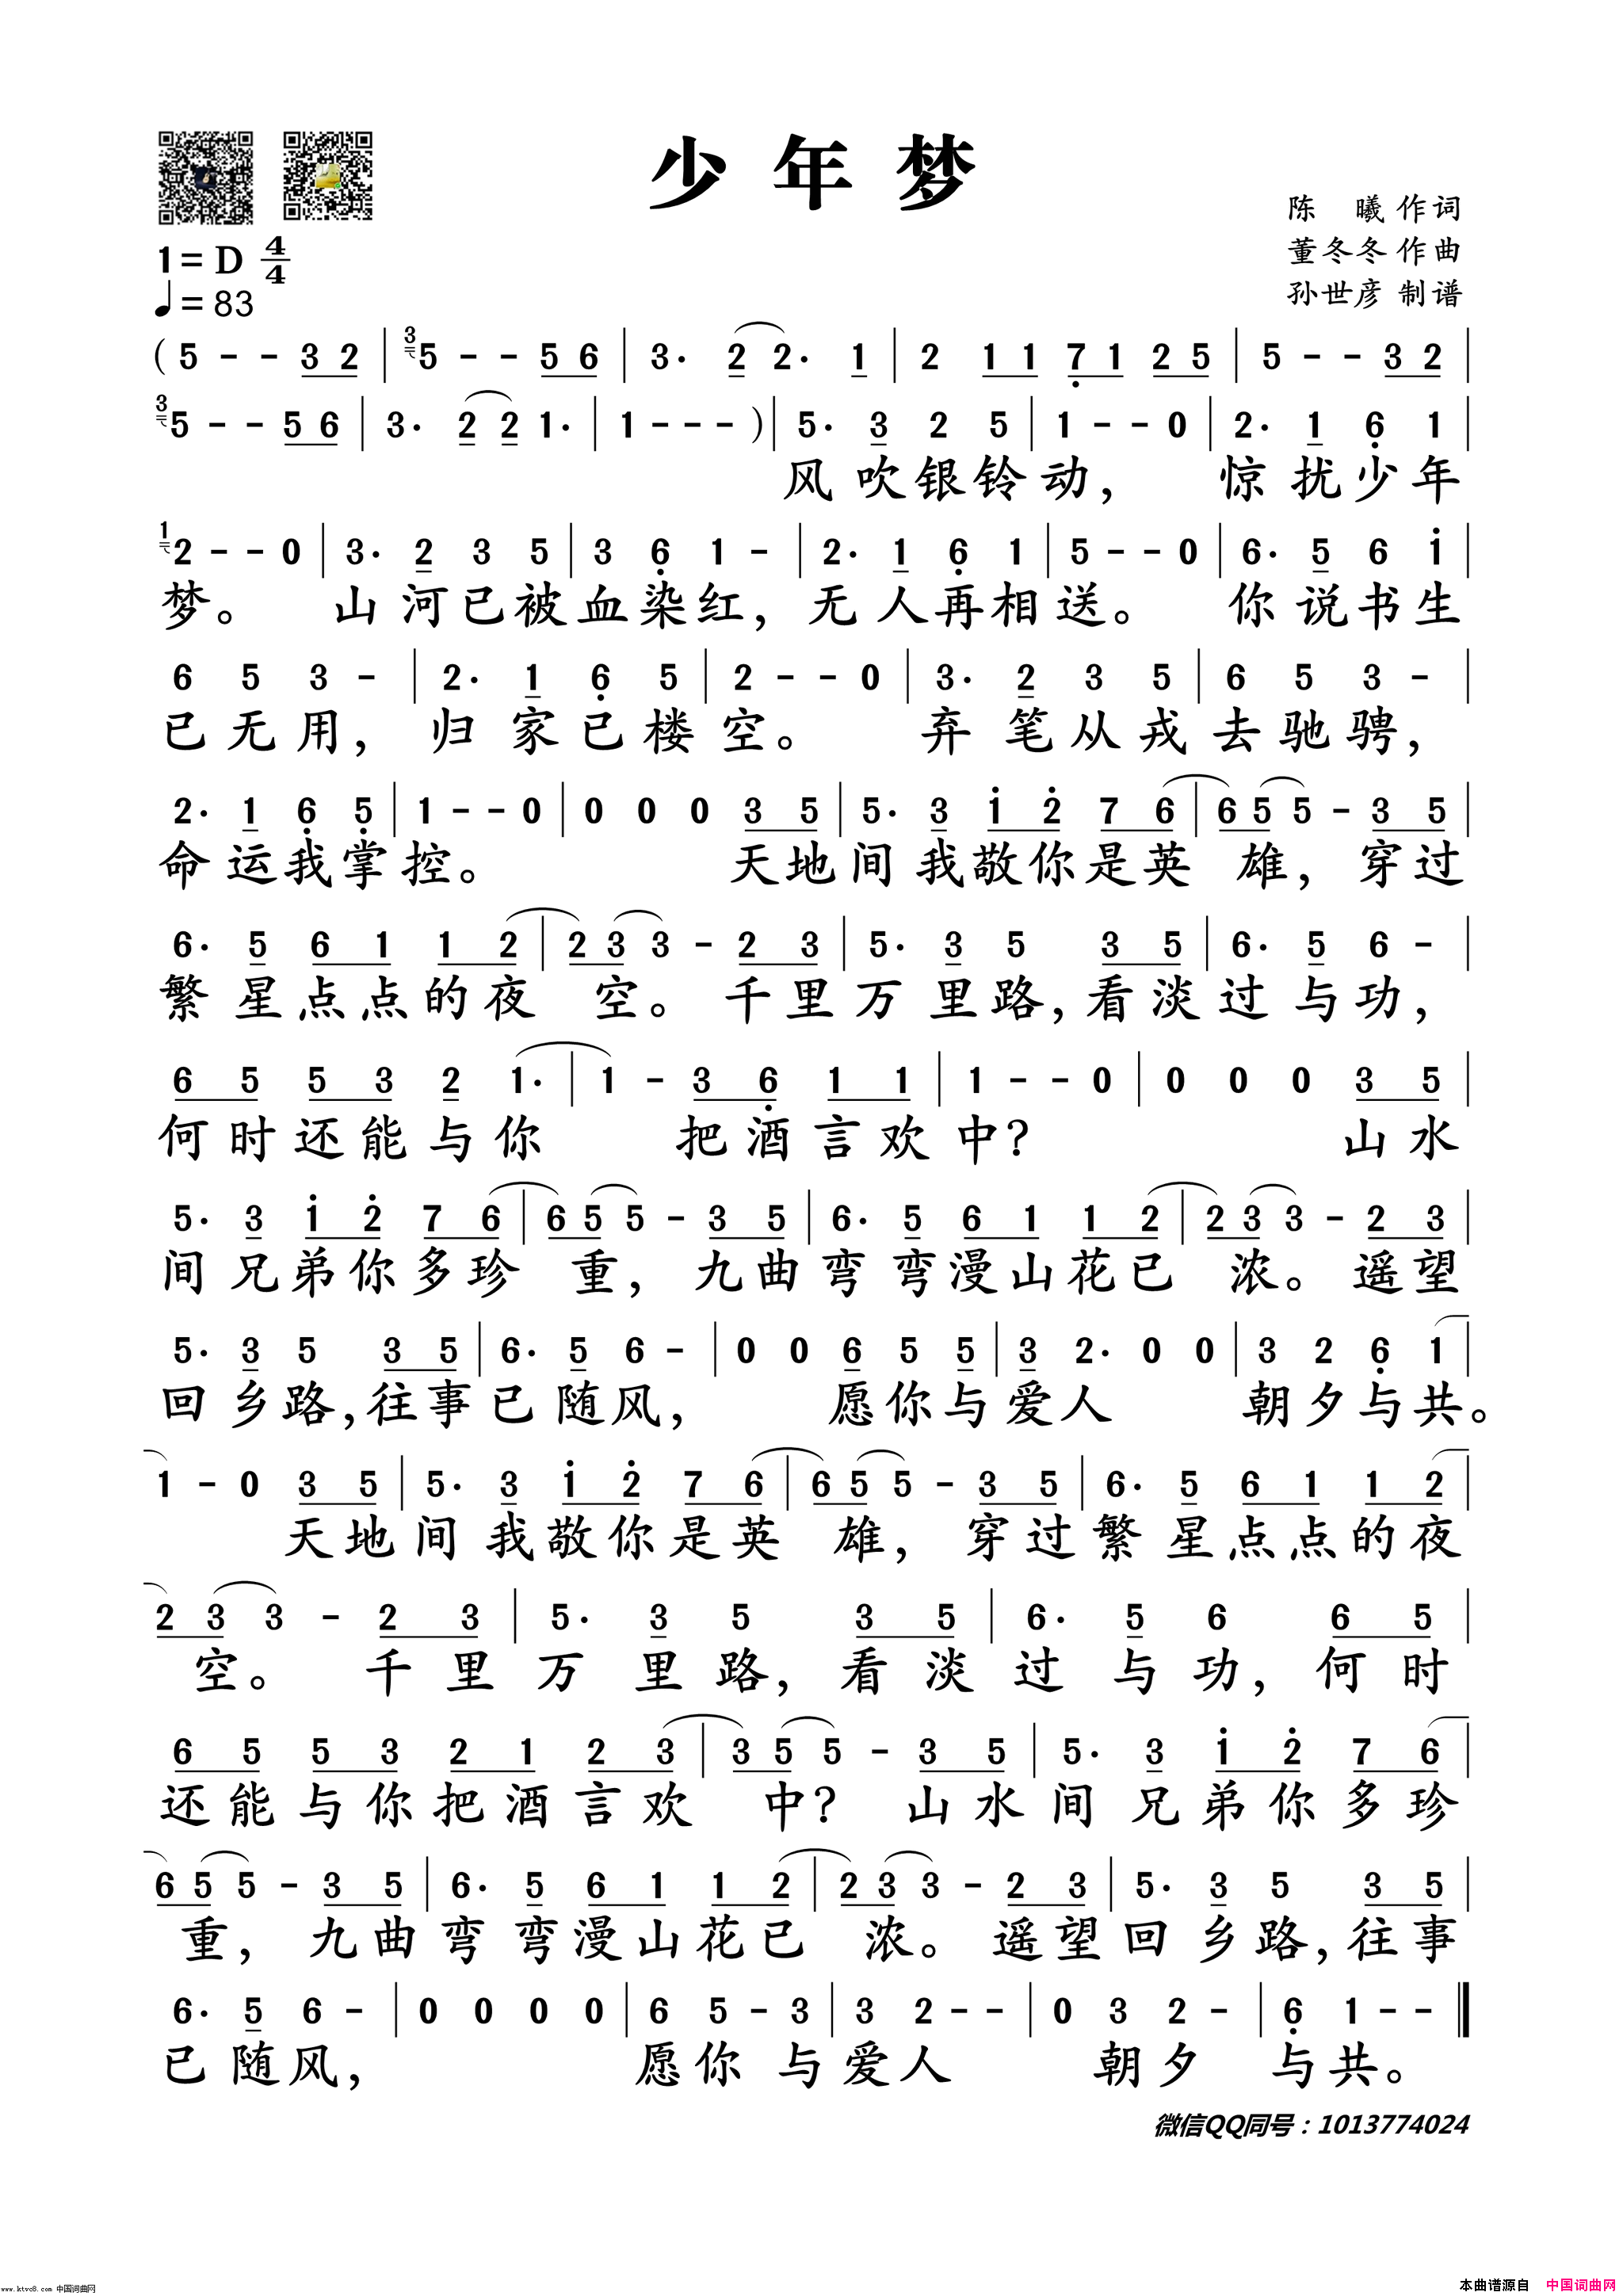 少年梦
陈 曦 作词
董冬冬 作曲
孙世彦 制谱
1= D 4/4
♩= 83
( 5 - - 3 2 | 3 5 - - 5 6 | 3· 2 2· 1 | 2 1 1 7 1 2 5 | 5 - - 3 2 |
3 5 - - 5 6 | 3· 2 2 1· | 1 - - - ) | 5· 3 2 5 | 1 - - 0 | 2· 1 6 1 |
风吹银铃动， 惊扰少年
1 2 - - 0 | 3· 2 3 5 | 3 6 1 - | 2· 1 6 1 | 5 - - 0 | 6· 5 6 i |
梦。 山河已被血染红，无人再相送。 你说书生
6 5 3 - | 2· 1 6 5 | 2 - - 0 | 3· 2 3 5 | 6 5 3 - |
已无用， 归家已楼空。 弃笔从戎去驰骋，
2· 1 6 5 | 1 - - 0 | 0 0 0 3 5 | 5· 3 i 2 7 6 | 6 5 5 - 3 5 |
命运我掌控。 天地间我敬你是英 雄，穿过
6· 5 6 1 1 2 | 2 3 3 - 2 3 | 5· 3 5 3 5 | 6· 5 6 - |
繁星点点的夜 空。千里万里路，看淡过与功，
6 5 5 3 2 1· | 1 - 3 6 1 1 | 1 - - 0 | 0 0 0 3 5 |
何时还能与你 把酒言欢中？ 山水
5· 3 i 2 7 6 | 6 5 5 - 3 5 | 6· 5 6 1 1 2 | 2 3 3 - 2 3 |
间兄弟你多珍 重，九曲弯弯漫山花已 浓。遥望
5· 3 5 3 5 | 6· 5 6 - | 0 0 6 5 5 | 3 2· 0 0 | 3 2 6 1 |
回乡路，往事已随风， 愿你与爱人 朝夕与共。
1 - 0 3 5 | 5· 3 i 2 7 6 | 6 5 5 - 3 5 | 6· 5 6 1 1 2 |
天地间我敬你是英 雄，穿过繁星点点的夜
2 3 3 - 2 3 | 5· 3 5 3 5 | 6· 5 6 6 5 |
空。 千里万里路，看淡过与功，何时
6 5 5 3 2 1 2 3 | 3 5 5 - 3 5 | 5· 3 i 2 7 6 |
还能与你把酒言欢 中？ 山水间兄弟你多珍
6 5 5 - 3 5 | 6· 5 6 1 1 2 | 2 3 3 - 2 3 | 5· 3 5 3 5 |
重，九曲弯弯漫山花已 浓。遥望回乡路，往事
6· 5 6 - | 0 0 0 0 | 6 5 - 3 | 3 2 - - | 0 3 2 - | 6 1 - - ‖
已随风， 愿你与爱人 朝夕 与共。
微信QQ同号：1013774024
www.ktvc8.com 中国词曲网
本曲谱源自 中国词曲网